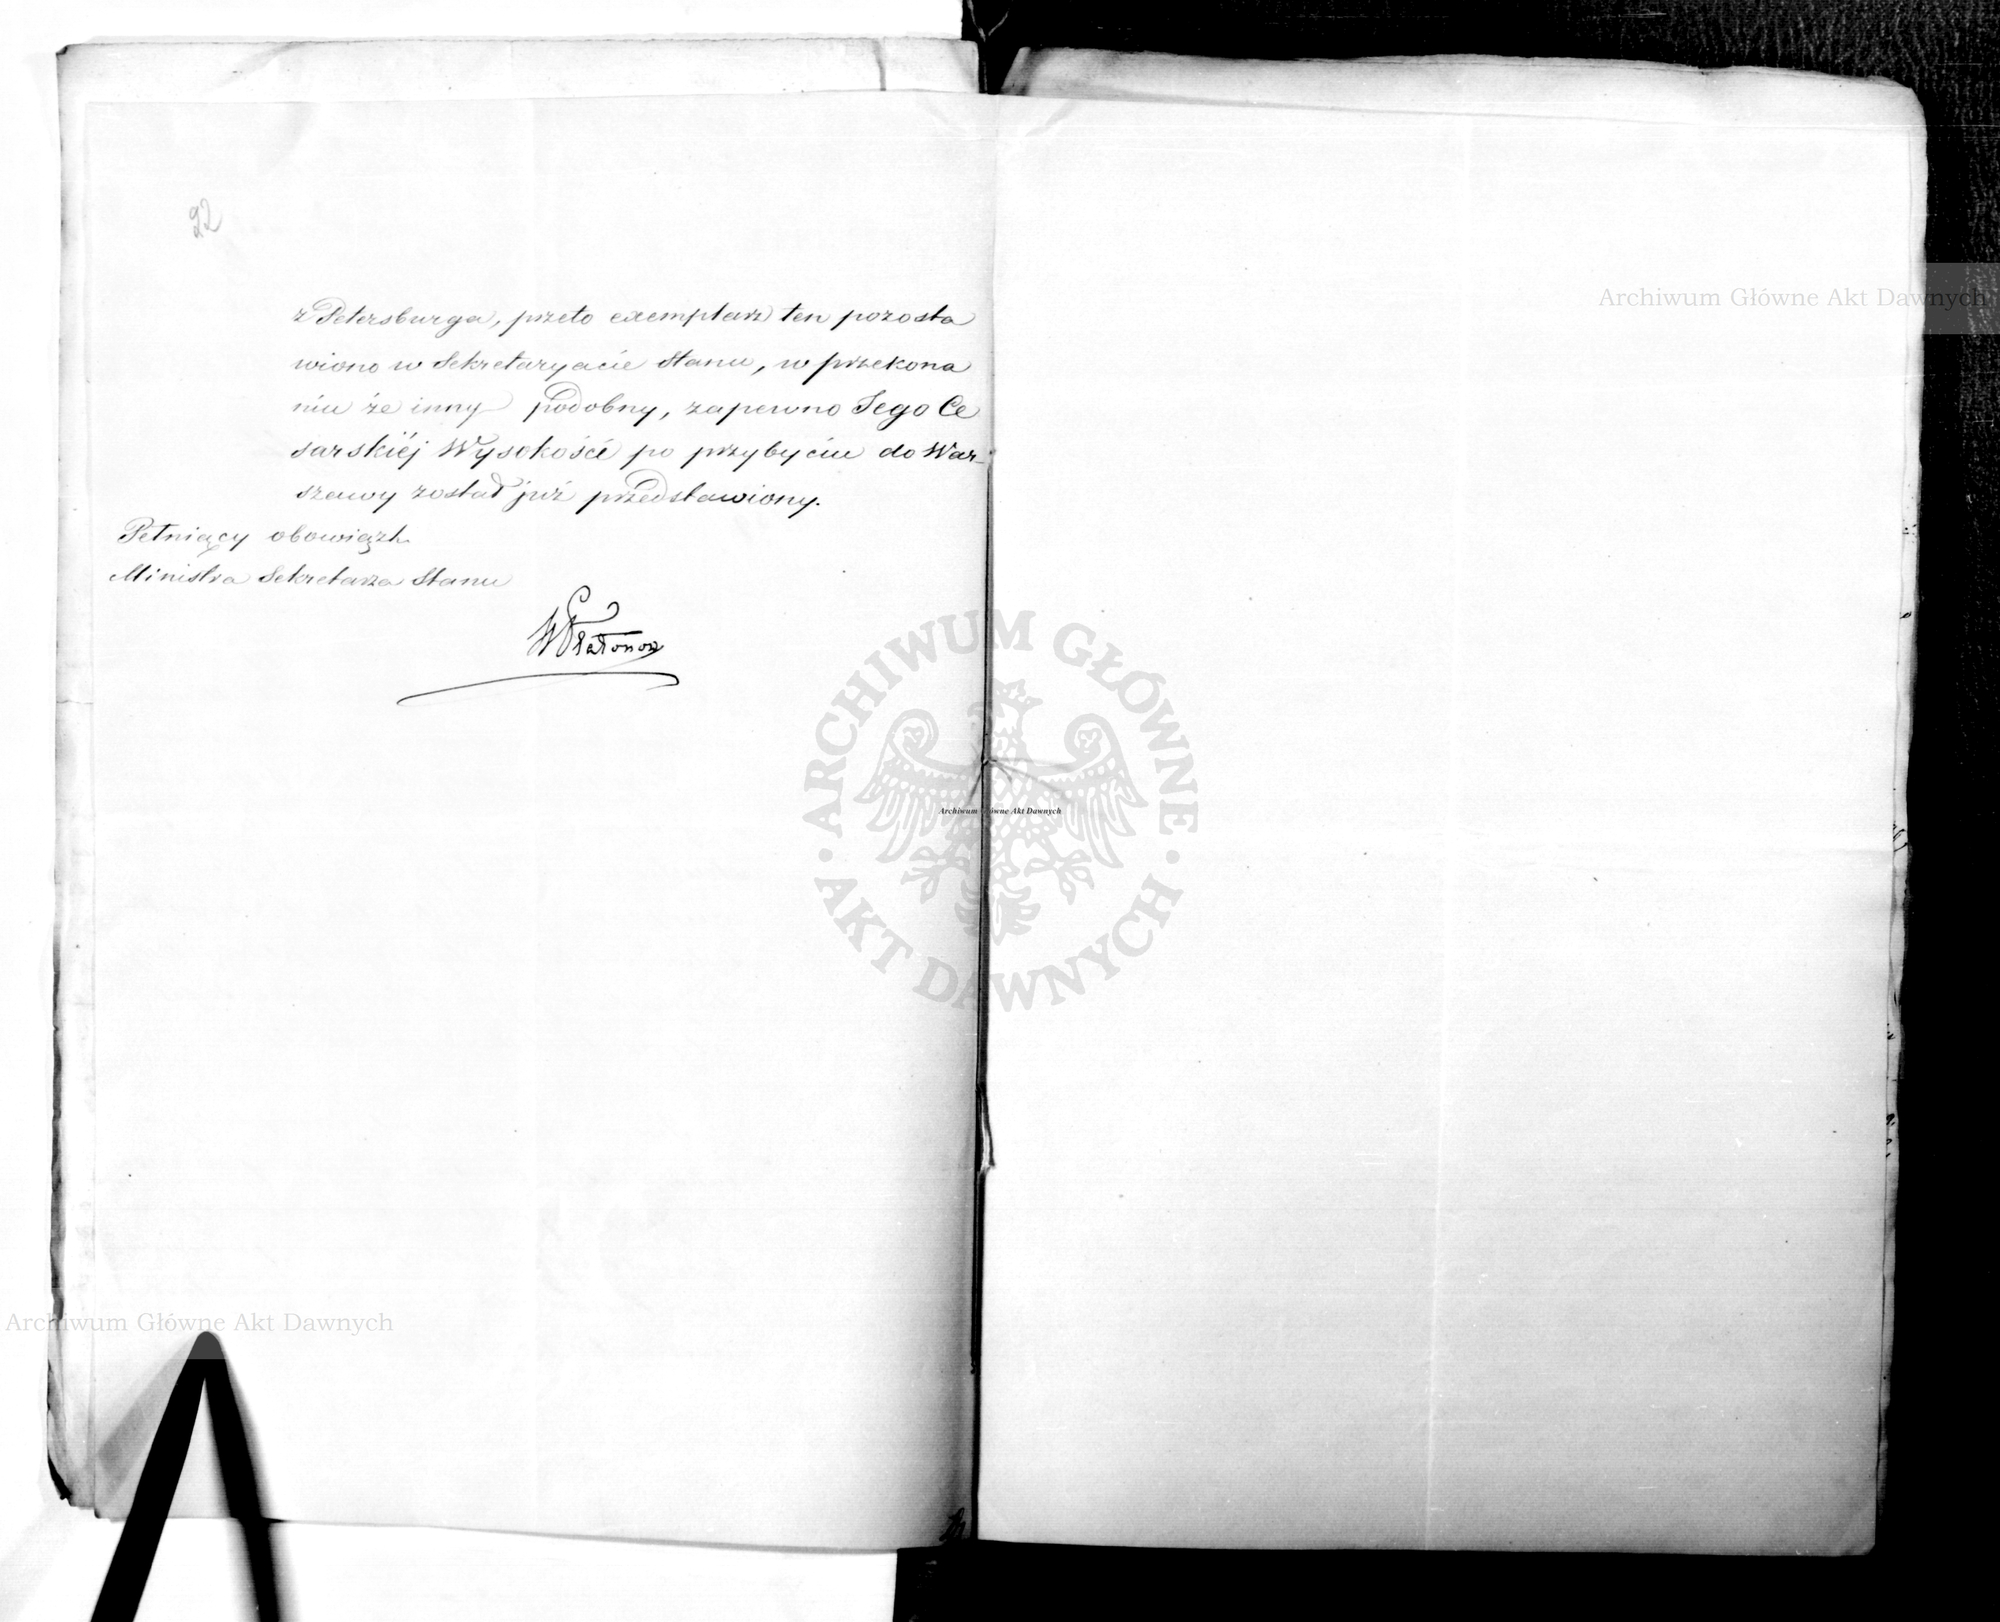 22
z Petersburga, przeto exemplarz ten pozosta
wiono w Sekretaryacie Stanu, w przekona
niu że inny podobny, zapewno Jego Ce
sarskiéj Wysokości po przybyciu do War-
szawy został już przedstawiony.
Pełniący obowiązk.
Ministra Sekretarza Stanu
WPłatonow
Archiwum Główne Akt Dawnych
ARCHIWUM GŁÓWNE AKT DAWNYCH
Archiwum Główne Akt Dawnych
Archiwum Główne Akt Dawnych